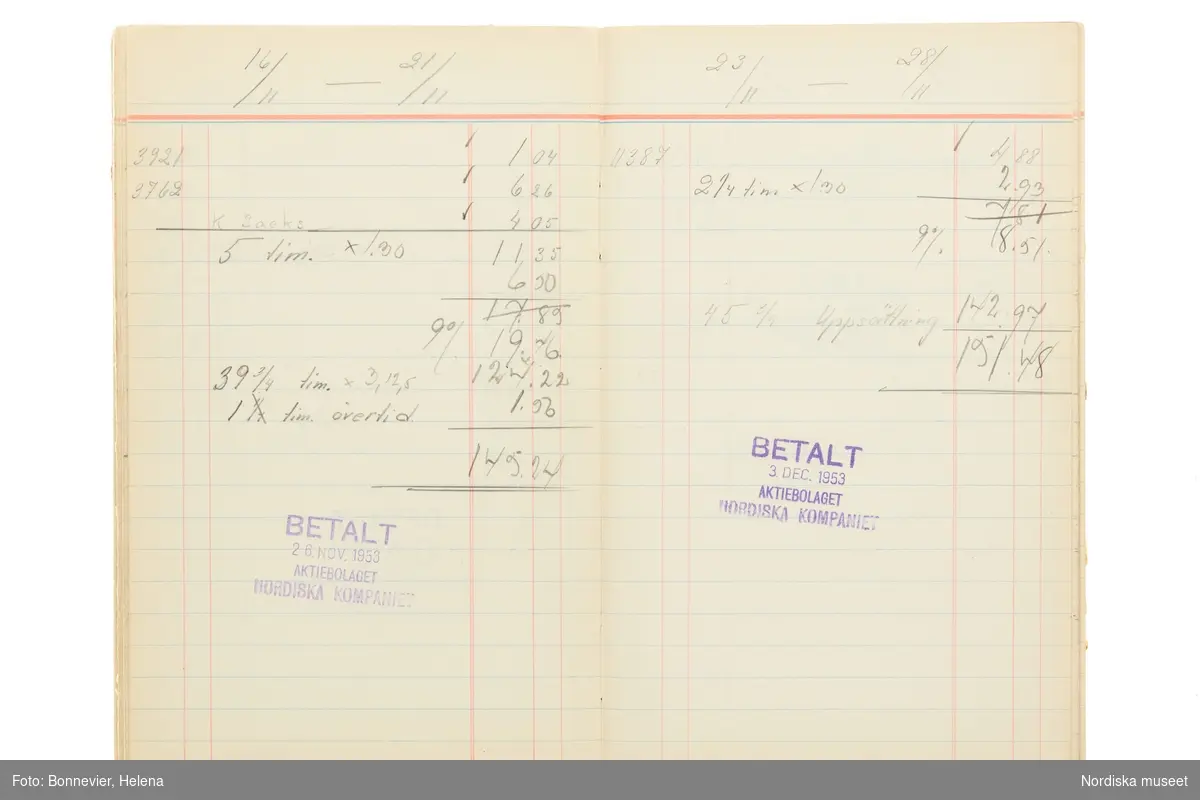 16/11 — 21/11
3921 1 04
3762 6 26
K Sacks 4 05
5 tim. x 1.30 11,35
6 50
17.85
9% 19.46.
39 3/4 tim. x 3,12,5 124.22
1 tim. övertid. 1.56
145.24
BETALT
26. NOV. 1953
AKTIEBOLAGET
NORDISKA KOMPANIET
23/11 — 28/11
11387 4 88
2 1/4 tim x 1.30 2.93
7,81
9%. 8.51.
45 3/4 Uppsättning 142.97
151.48
BETALT
3. DEC. 1953
AKTIEBOLAGET
NORDISKA KOMPANIET
Foto: Bonnevier, Helena
Nordiska museet